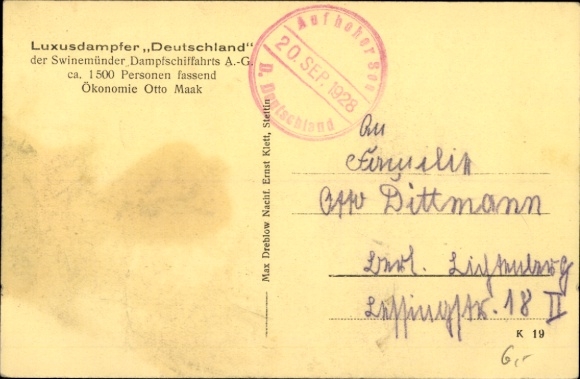 Luxusdampfer „Deutschland"
der Swinemünder Dampfschiffahrts A.-G.
ca. 1500 Personen fassend
Ökonomie Otto Maak
Auf hoher See
20. SEP. 1928
D. Deutschland
Max Dreblow Nachf. Ernst Klett, Stettin
An
Familie
Otto Dittmann
Berl. Lichtenberg
Lessingstr. 18 II
K 19
6,-